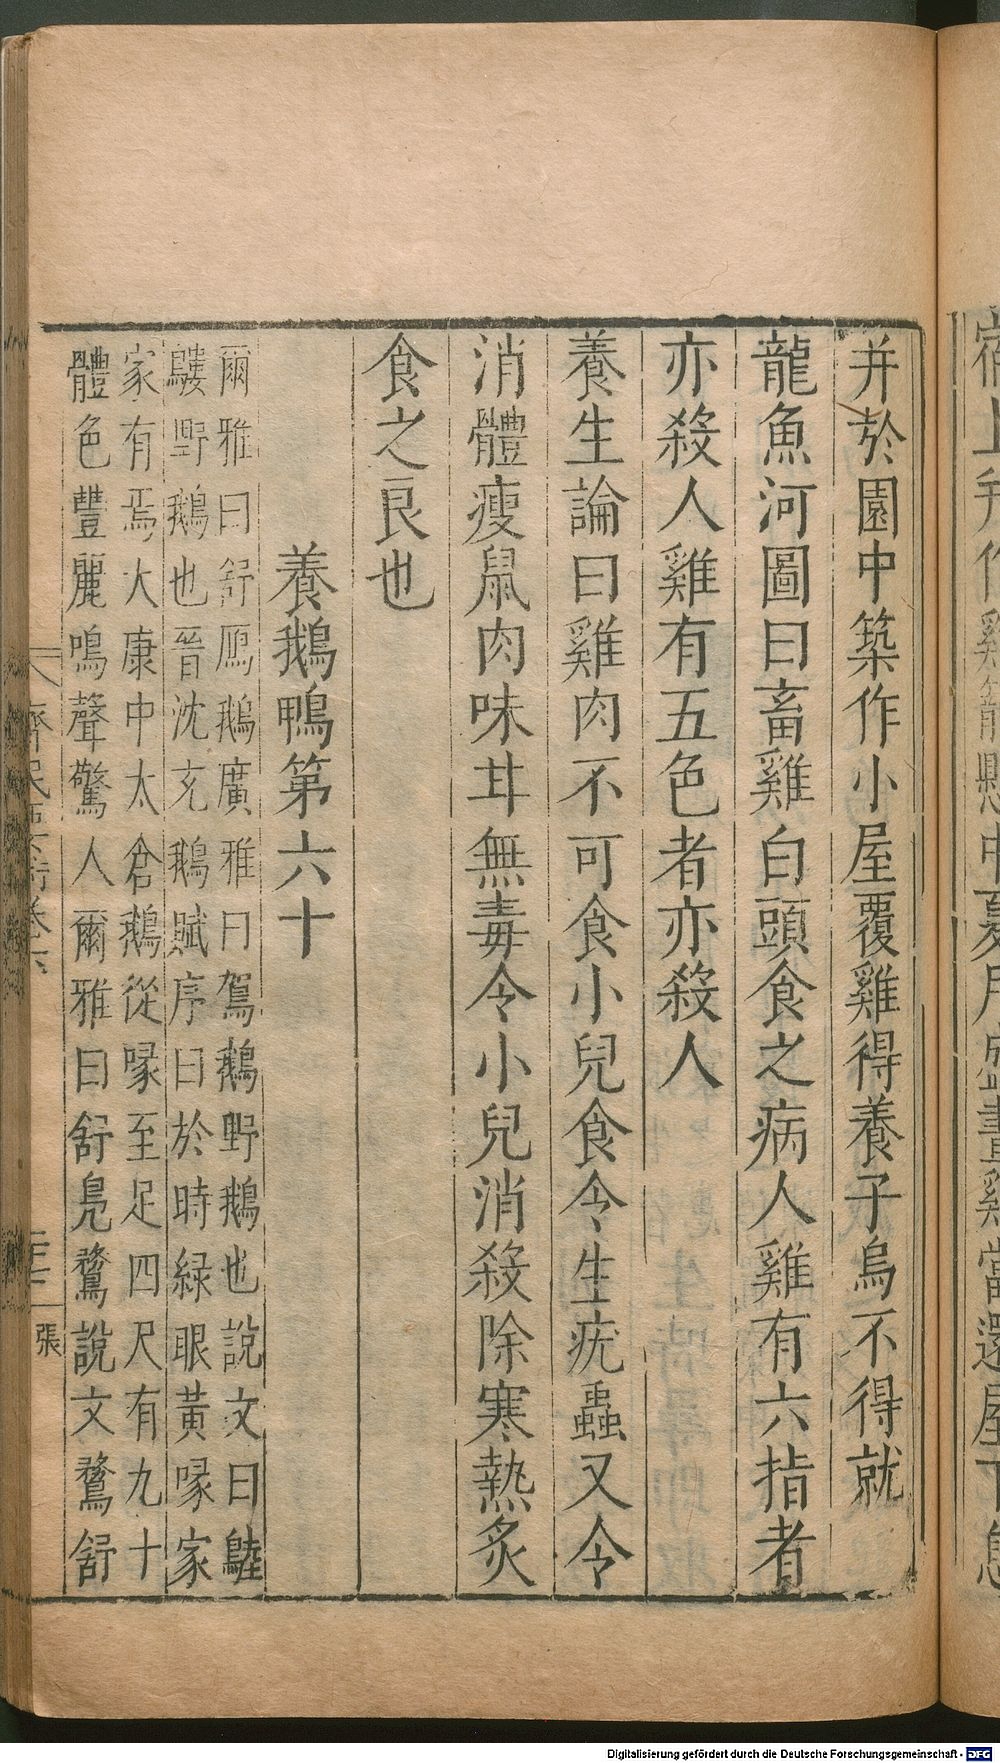 并於園中築作小屋覆雞得養子烏不得就
龍魚河圖曰畜雞白頭食之病人雞有六指者
亦殺人雞有五色者亦殺人
養生論曰雞肉不可食小兒食令生疣蟲又令
消體瘦鼠肉味甘無毒令小兒消殺除寒熱炙
食之良也
養鵝鴨第六十
爾雅曰舒鴈鵝廣雅曰駕鵝野鵝也說文曰鵱
鷜野鵝也晉沈充鵝賦序曰於時緑眼黃喙家
家有焉大康中太倉鵝從喙至足四尺有九十
體色豐麗鳴聲驚人爾雅曰舒鳬鶩說文鶩舒
齊民要術卷六
張
Digitalisierung gefördert durch die Deutsche Forschungsgemeinschaft - DFG